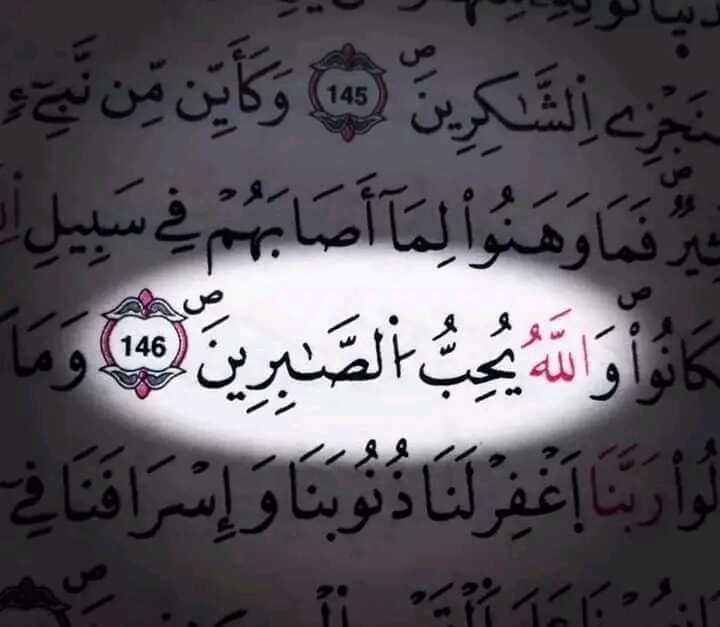 سَنَجْزِے اِ۬لشَّٰكِرِينَۖ 145 وَكَأَيِّن مِّن نَّبِيٓءٖ
فَمَا وَهَنُواْ لِمَآ أَصَابَهُمْ فِے سَبِيلِ
كَانُواْۖ وَاللَّهُ يُحِبُّ اُ۬لصَّٰبِرِينَۖ 146 وَمَا
رَبَّنَا اَ۪غْفِرْ لَنَا ذُنُوبَنَا وَإِسْرَافَنَا فِےٓ